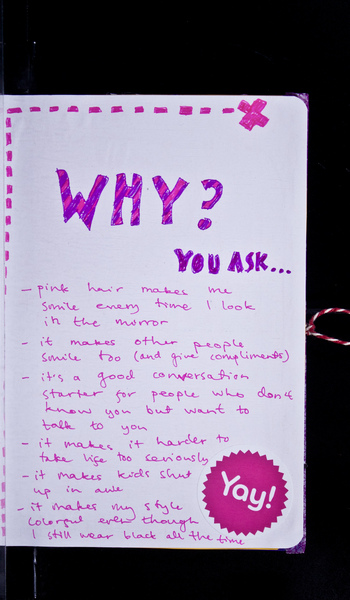 WHY?
YOU ASK...
- pink hair makes me
smile every time I look
in the mirror
- it makes other people
smile too (and give compliments)
- it's a good conversation
starter for people who don't
know you but want to
talk to you
- it makes it harder to
take life too seriously
- it makes kids shut
up in awe
- it makes my style
colorful even though
I still wear black all the time
Yay!